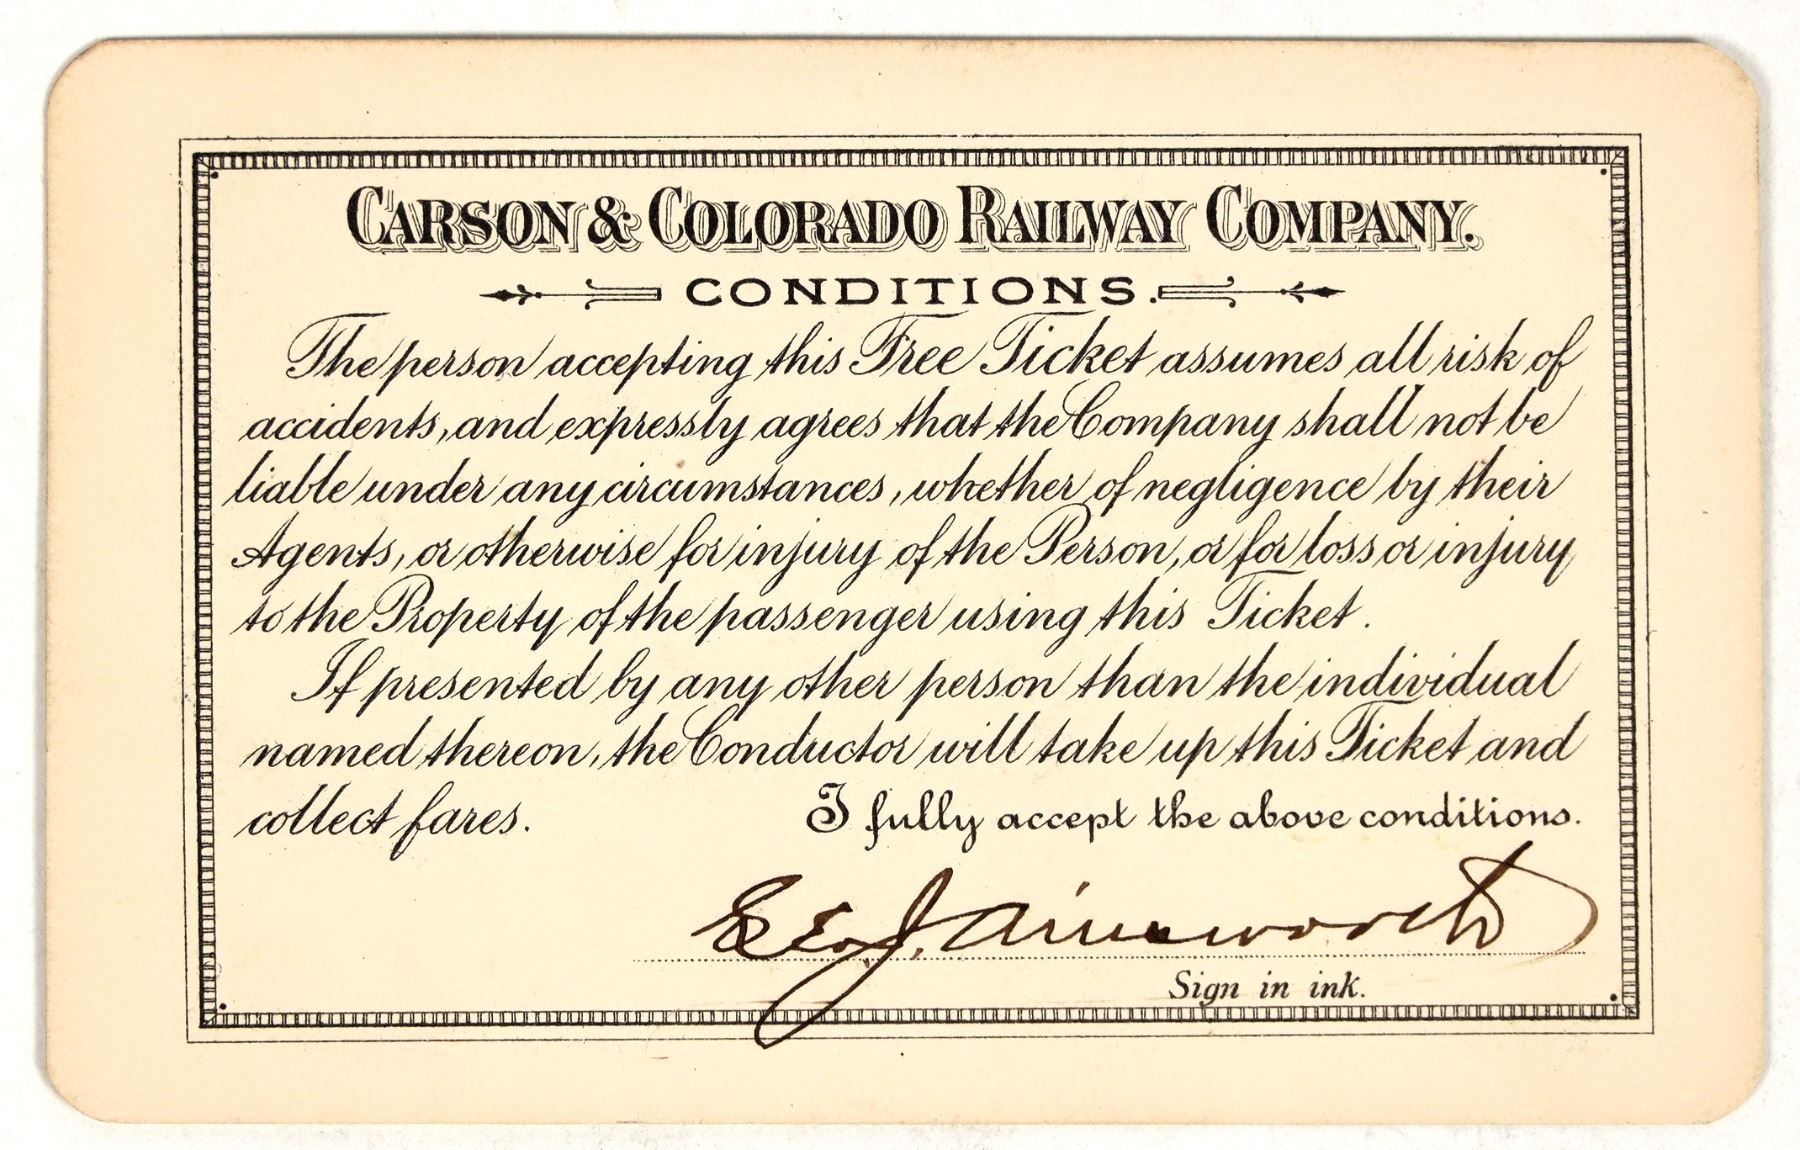 CARSON & COLORADO RAILWAY COMPANY.
CONDITIONS.
The person accepting this Free Ticket assumes all risk of
accidents, and expressly agrees that the Company shall not be
liable under any circumstances, whether of negligence by their
Agents, or otherwise for injury of the Person, or for loss or injury
to the Property of the passenger using this Ticket.
If presented by any other person than the individual
named thereon, the Conductor will take up this Ticket and
collect fares.
I fully accept the above conditions.
Geo. J. Ainsworth
Sign in ink.